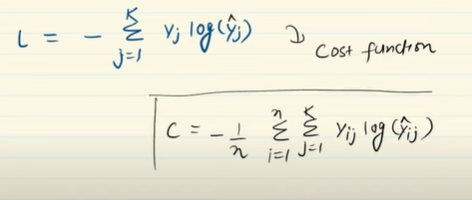 L = - Σ_{j=1}^{K} y_j log(ŷ_j) } Cost function
C = - 1/n Σ_{i=1}^{n} Σ_{j=1}^{K} y_{ij} log(ŷ_{ij})